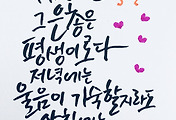 그 은총은
평생이로다
저녁에는
울음이 기숙할지라도